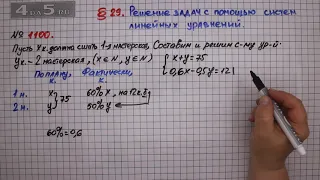 4 ДА 5 RU
§ 29. Решение задач с помощью систем
линейных уравнений.
№ 1100.
Пусть x к. должна сшить 1-я мастерская, Составим и решим с-му ур-й.
y к. - 2 мастерская, (x ∈ N, y ∈ N)
{ x + y = 75
0,6x - 0,5y = 12
По плану, Фактически,
к. к.
1 м. x } 75 60% x, на 12 к. >
2 м. y 50% y
60% = 0,6